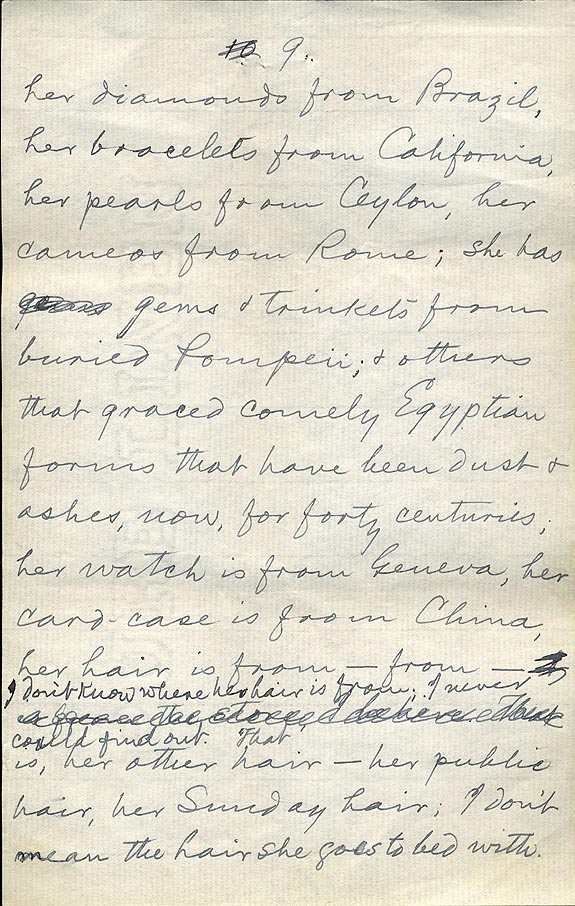 10 9.
her diamonds from Brazil,
her bracelets from California,
her pearls from Ceylon, her
cameos from Rome; she has
gems & trinkets from
buried Pompeii; & others
that graced comely Egyptian
forms that have been dust &
ashes, now, for forty centuries;
her watch is from Geneva, her
card-case is from China,
her hair is from — from —
I don't know where her hair is from; I never
could find out. That
is, her other hair — her public
hair, her Sunday hair; I don't
mean the hair she goes to bed with.